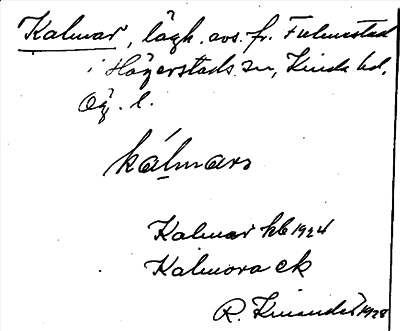 Kalmar, lägh. avs. fr. Fulmestad
i Hägerstads sn, Kinda hd,
Ög. l.
kálmarn
Kalmar hb 1924
Kalmora ek
R. 1928